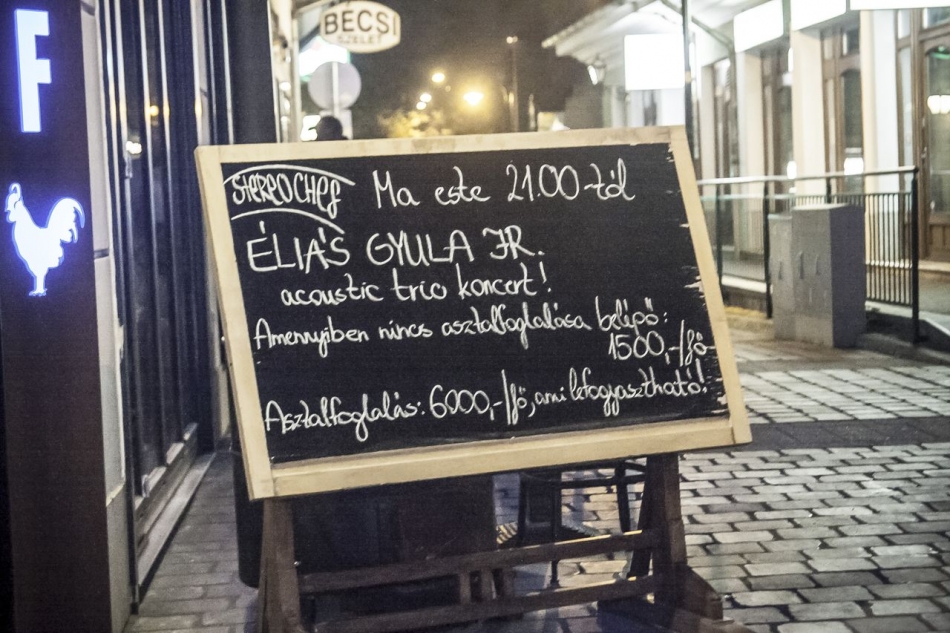 F
BECSI
SZELET
STEREOCHEF Ma este 21.00-tól
ÉLIÁS GYULA JR.
acoustic trio koncert!
Amennyiben nincs asztalfoglalása belépő:
1500,-/fő
Asztalfoglalás: 6000,-/fő, ami lefogyasztható!